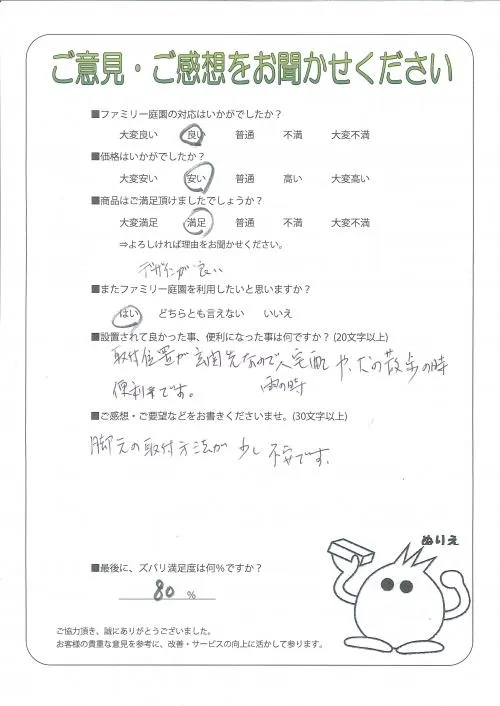 ご意見・ご感想をお聞かせください
■ファミリー庭園の対応はいかがでしたか？
大変良い 良い 普通 不満 大変不満
■価格はいかがでしたか？
大変安い 安い 普通 高い 大変高い
■商品はご満足頂けましたでしょうか？
大変満足 満足 普通 不満 大変不満
⇒よろしければ理由をお聞かせください。
デザインが良い
■またファミリー庭園を利用したいと思いますか？
はい どちらとも言えない いいえ
■設置されて良かった事、便利になった事は何ですか？(20文字以上)
取付位置が玄関先なので、宅配や、犬の散歩の時
雨の時
便利です。
■ご感想・ご要望などをお書きくださいませ。(30文字以上)
脚元の取付方法が少し不安です。
ぬりえ
■最後に、ズバリ満足度は何％ですか？
80 ％
ご協力頂き、誠にありがとうございました。
お客様の貴重な意見を参考に、改善・サービスの向上に活かして参ります。